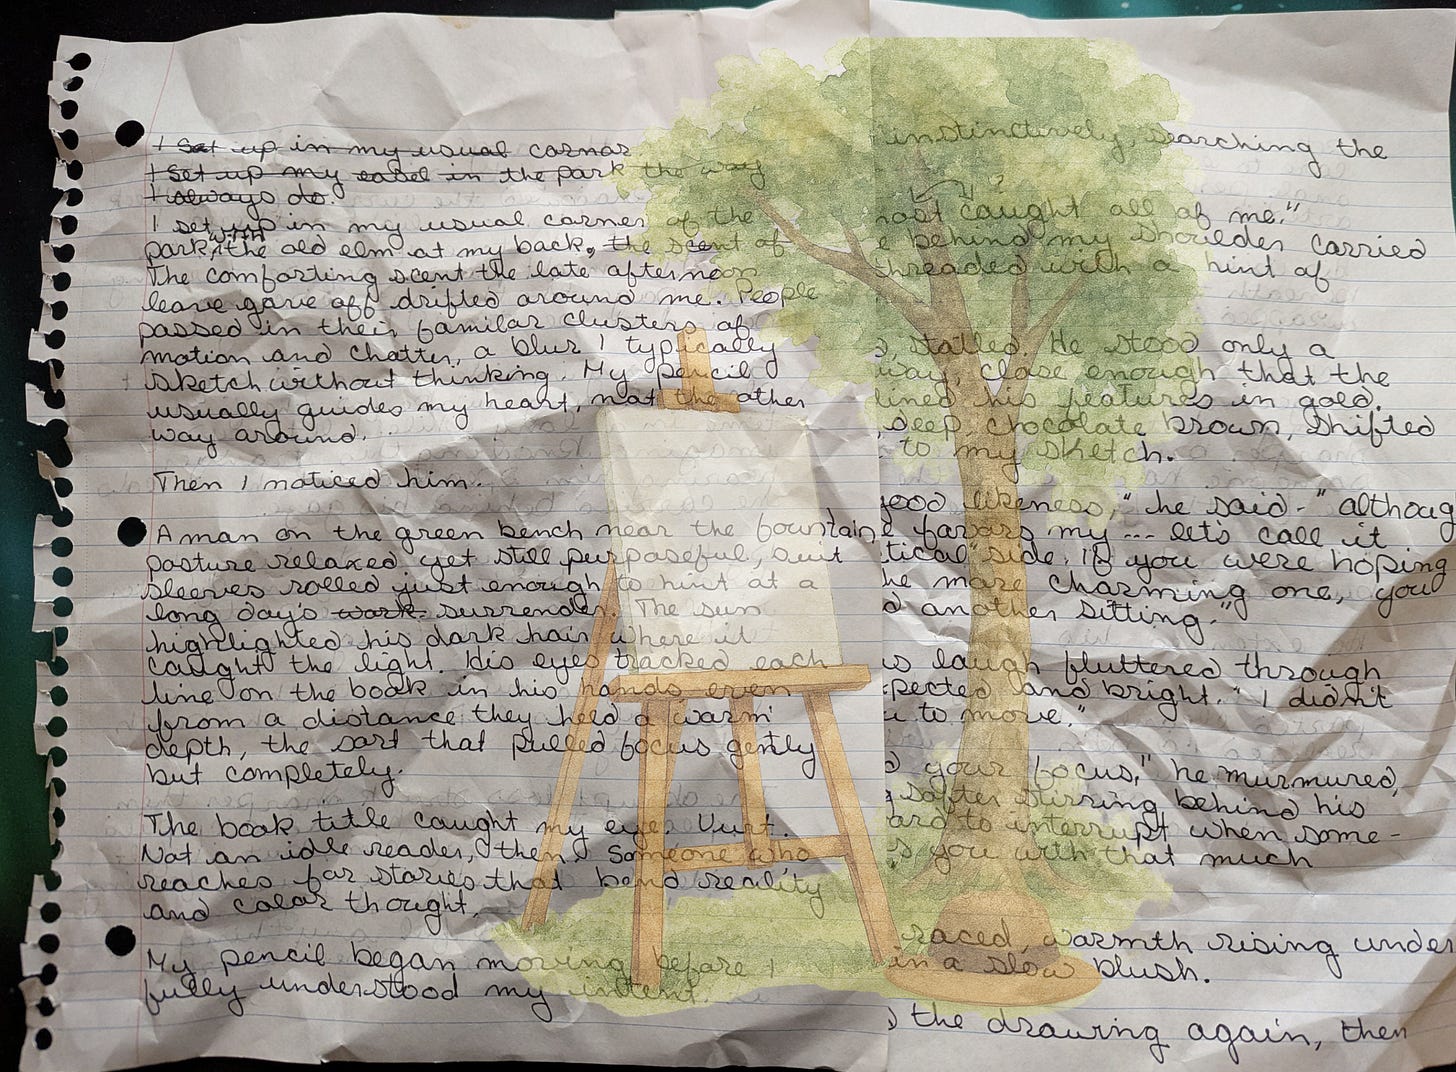 I set up in my usual corner
I set up my easel in the park the way
I always do.
I set up in my usual corner of the
park, with the old elm at my back, the scent of
The comforting scent the late afternoon
leave gave off drifted around me. People
passed in their familar clusters of
motion and chatter, a blur I typically
sketch without thinking. My pencil
usually guides my heart, not the other
way around.
Then I noticed him.
A man on the green bench near the fountain
posture relaxed yet still purposeful, suit
sleeves rolled just enough to hint at a
long day's work surrender. The sun
highlighted his dark hair where it
caught the light. His eyes tracked each
line on the book in his hands even
from a distance they held a warm
depth, the sort that pulled focus gently
but completely.
The book title caught my eye. Vurt.
Not an idle reader, then. Someone who
reaches for stories that bend reality
and color thought.
My pencil began moving before I
fully understood my intent.
instinctively, searching the
?
most caught all of me."
e behind my shoulder carried
threaded with a hint of
s, stalled. He stood only a
way, close enough that the
lined his features in gold.
, deep chocolate brown, shifted
to my sketch.
good likeness," he said - "althoug
e favors my ... let's call it
tical" side. If you were hoping
he more charming one, you
d another sitting."
is laugh fluttered through
pected and bright. "I didn't
u to move."
d your focus," he murmured,
g softer stirring behind his
ard to interrupt when some-
s you with that much
raced, warmth rising under
in a slow blush.
the drawing again, then